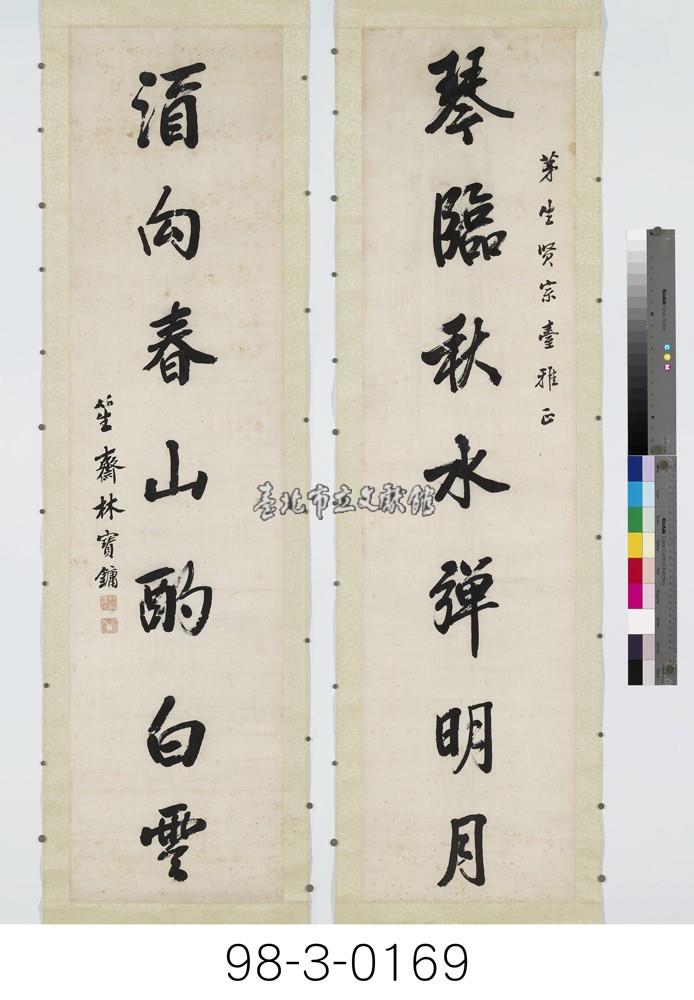 茅生賢宗臺雅正
琴臨秋水彈明月
酒向春山酌白雲
笙齋林寶鏞
臺北市立文獻館
98-3-0169